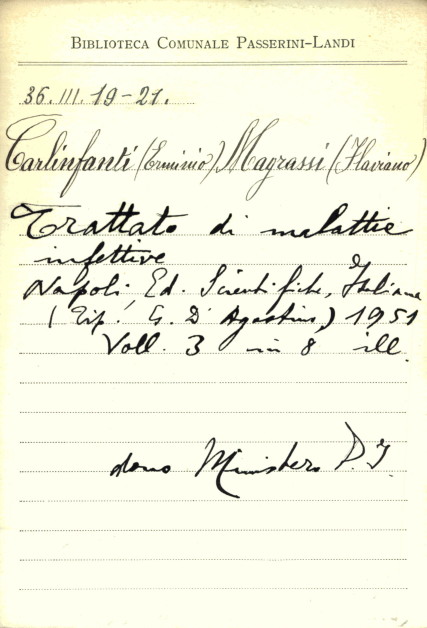 BIBLIOTECA COMUNALE PASSERINI-LANDI
36. III. 19-21.
Carlinfanti (Erminio) Magrassi (Flaviano)
Trattato di malattie
infettive
Napoli, Ed. Scientifiche, Italiana
(Tip. G. D'Agostino,) 1951
Voll. 3 in 8 ill.
dono Ministero P. I.